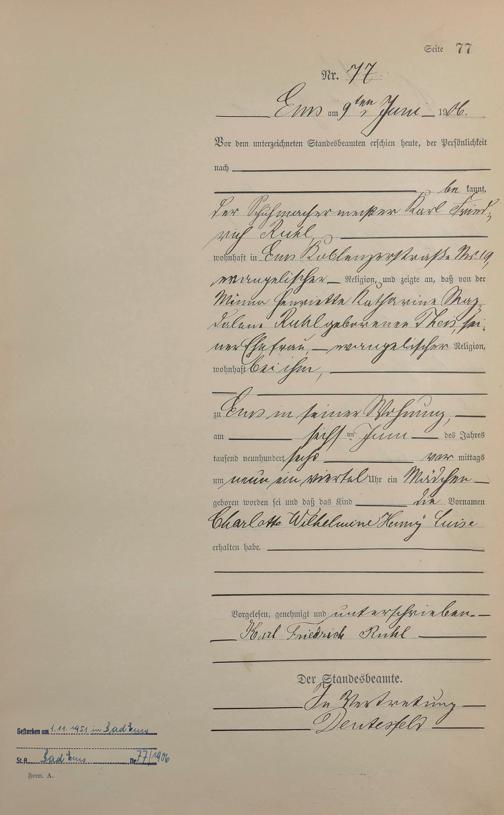 Seite 77
Nr. 77
Ems am 9ten Juni 1906.
Vor dem unterzeichneten Standesbeamten erschien heute, der Persönlichkeit
nach
be kannt,
der Schuhmachermeister Karl Fried-
rich Ruhl,
wohnhaft in Ems Koblenzerstraße No 19,
evangelischer Religion, und zeigte an, daß von der
Minna Henriette Katharine Mag-
dalene Ruhl geborenen Theis, sei-
ner Ehefrau, evangelischer Religion,
wohnhaft bei ihm,
zu Ems in seiner Wohnung,
am sechsten Juni des Jahres
tausend neunhundert sechs vor mittags
um neun ein viertel Uhr ein Mädchen
geboren worden sei und daß das Kind die Vornamen
Charlotte Wilhelmine Henny Luise
erhalten habe.
Vorgelesen, genehmigt und unterschrieben
Karl Friedrich Ruhl
Der Standesbeamte.
In Vertretung
Gestorben am 1.11.1951 in Bad Ems
St.A. Bad Ems Nr. 77/1906
Form. A.